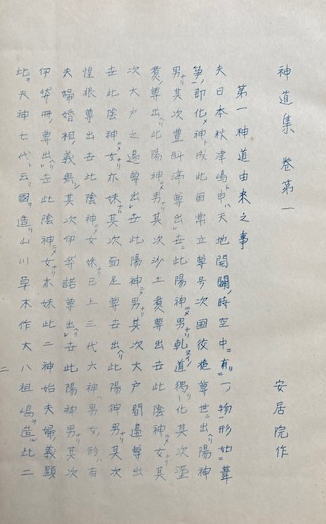 神道集 巻第一 安居院作
第一 神道由来之事
夫日本秋津嶋申天地開闢時空中有一物形如葦
即化神成此国常立尊号次国狭槌尊世出陽神
男其次豊斟渟尊出去此陽神男乾道獨化其次泥
煑尊出此陽神男其次沙土煑尊出去此陰神女其
次大戸之道尊出去此陽神男其次大戸間邊尊出
去此陰神女亦妹其次面足尊去出此陽神男其次
惶根尊出去此陰神女妹已上三代六神男女形有
夫婦婚相義无其次伊弉諾尊出去此陽神男其次
伊弉冊尊出去此陰神女亦妹此二神始夫婦義顕
此天神七代云国造山川草木作大八祖嶋造此二
二